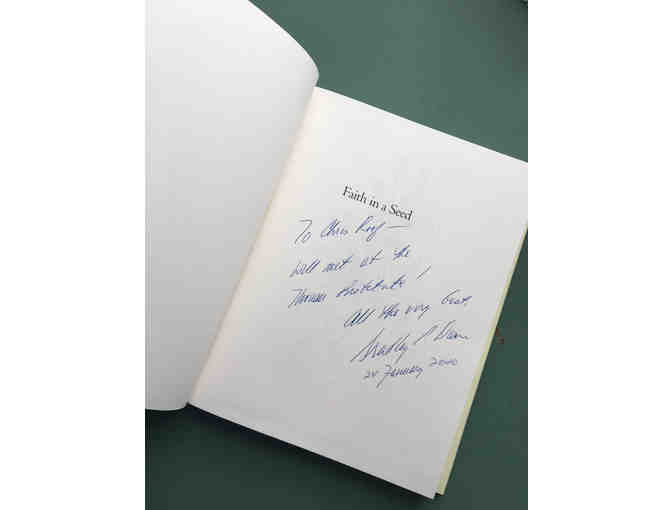 Faith in a Seed
To Chris Roof —
Well met at the
Thoreau Institute!
All the very best,
Bradley P Dean
24 January 2000